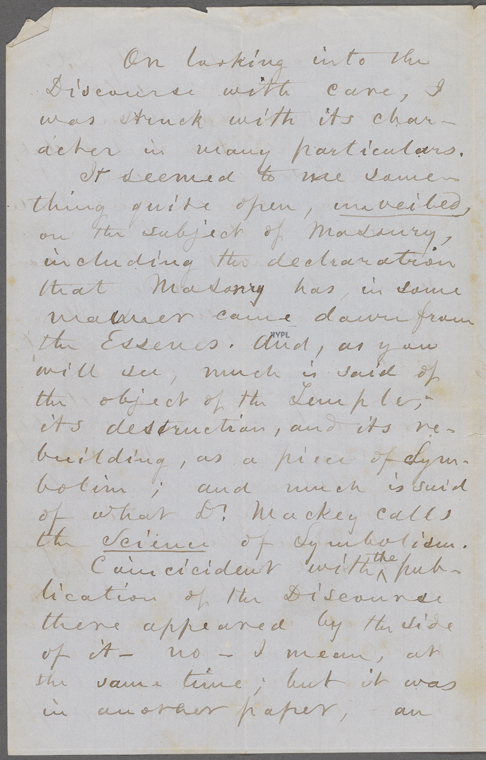 On looking into the
Discourse with care, I
was struck with its char-
acter in many particulars.
It seemed to me some-
thing quite open, unveiled,
on the subject of Masonry,
including the declaration
that Masonry has, in some
manner came down from
the Essenes. And, as you
NYPL
will see, much is said of
the object of the Temple,-
its destruction, and its re-
building, as a piece of Sym-
bolim; and much is said
of what Dr. Mackey calls
the Science of Symbolism.
Coincicident with the pub-
lication of the Discourse
there appeared by the side
of it - no - I mean, at
the same time; but it was
in another paper, an